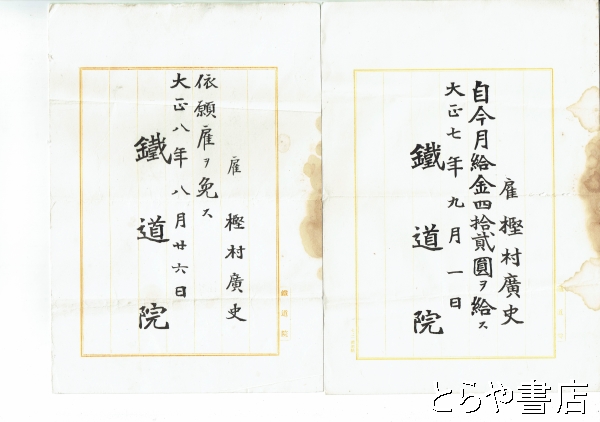 雇 樫村廣史
自今月給金四拾貳圓ヲ給ス
大正七年九月一日
鐵道院
雇 樫村廣史
依願雇ヲ免ス
大正八年八月廿六日
鐵道院
鐵道院
とらや書店